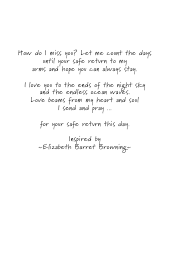 How do I miss you? Let me count the days
until your safe return to my
arms and hope you can always stay.
I love you to the ends of the night sky
and the endless ocean waves.
Love beams from my heart and soul
I send and pray ...
for your safe return this day.
Inspired by
~Elizabeth Barret Browning~